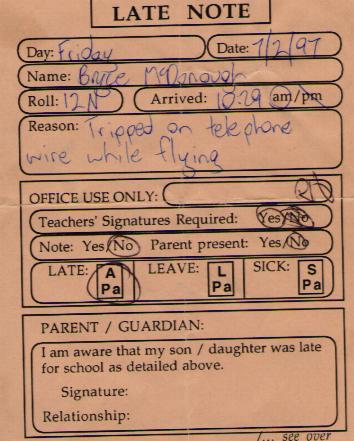 LATE NOTE
Day: Friday Date: 7/2/97
Name: Bryce McDonough
Roll: 12N Arrived: 10:29 am/pm
Reason: Tripped on telephone
wire while flying
OFFICE USE ONLY:
Teachers' Signatures Required: Yes/No
Note: Yes/No Parent present: Yes/No
LATE: A Pa LEAVE: L Pa SICK: S Pa
PARENT / GUARDIAN:
I am aware that my son / daughter was late
for school as detailed above.
Signature:
Relationship:
/... see over